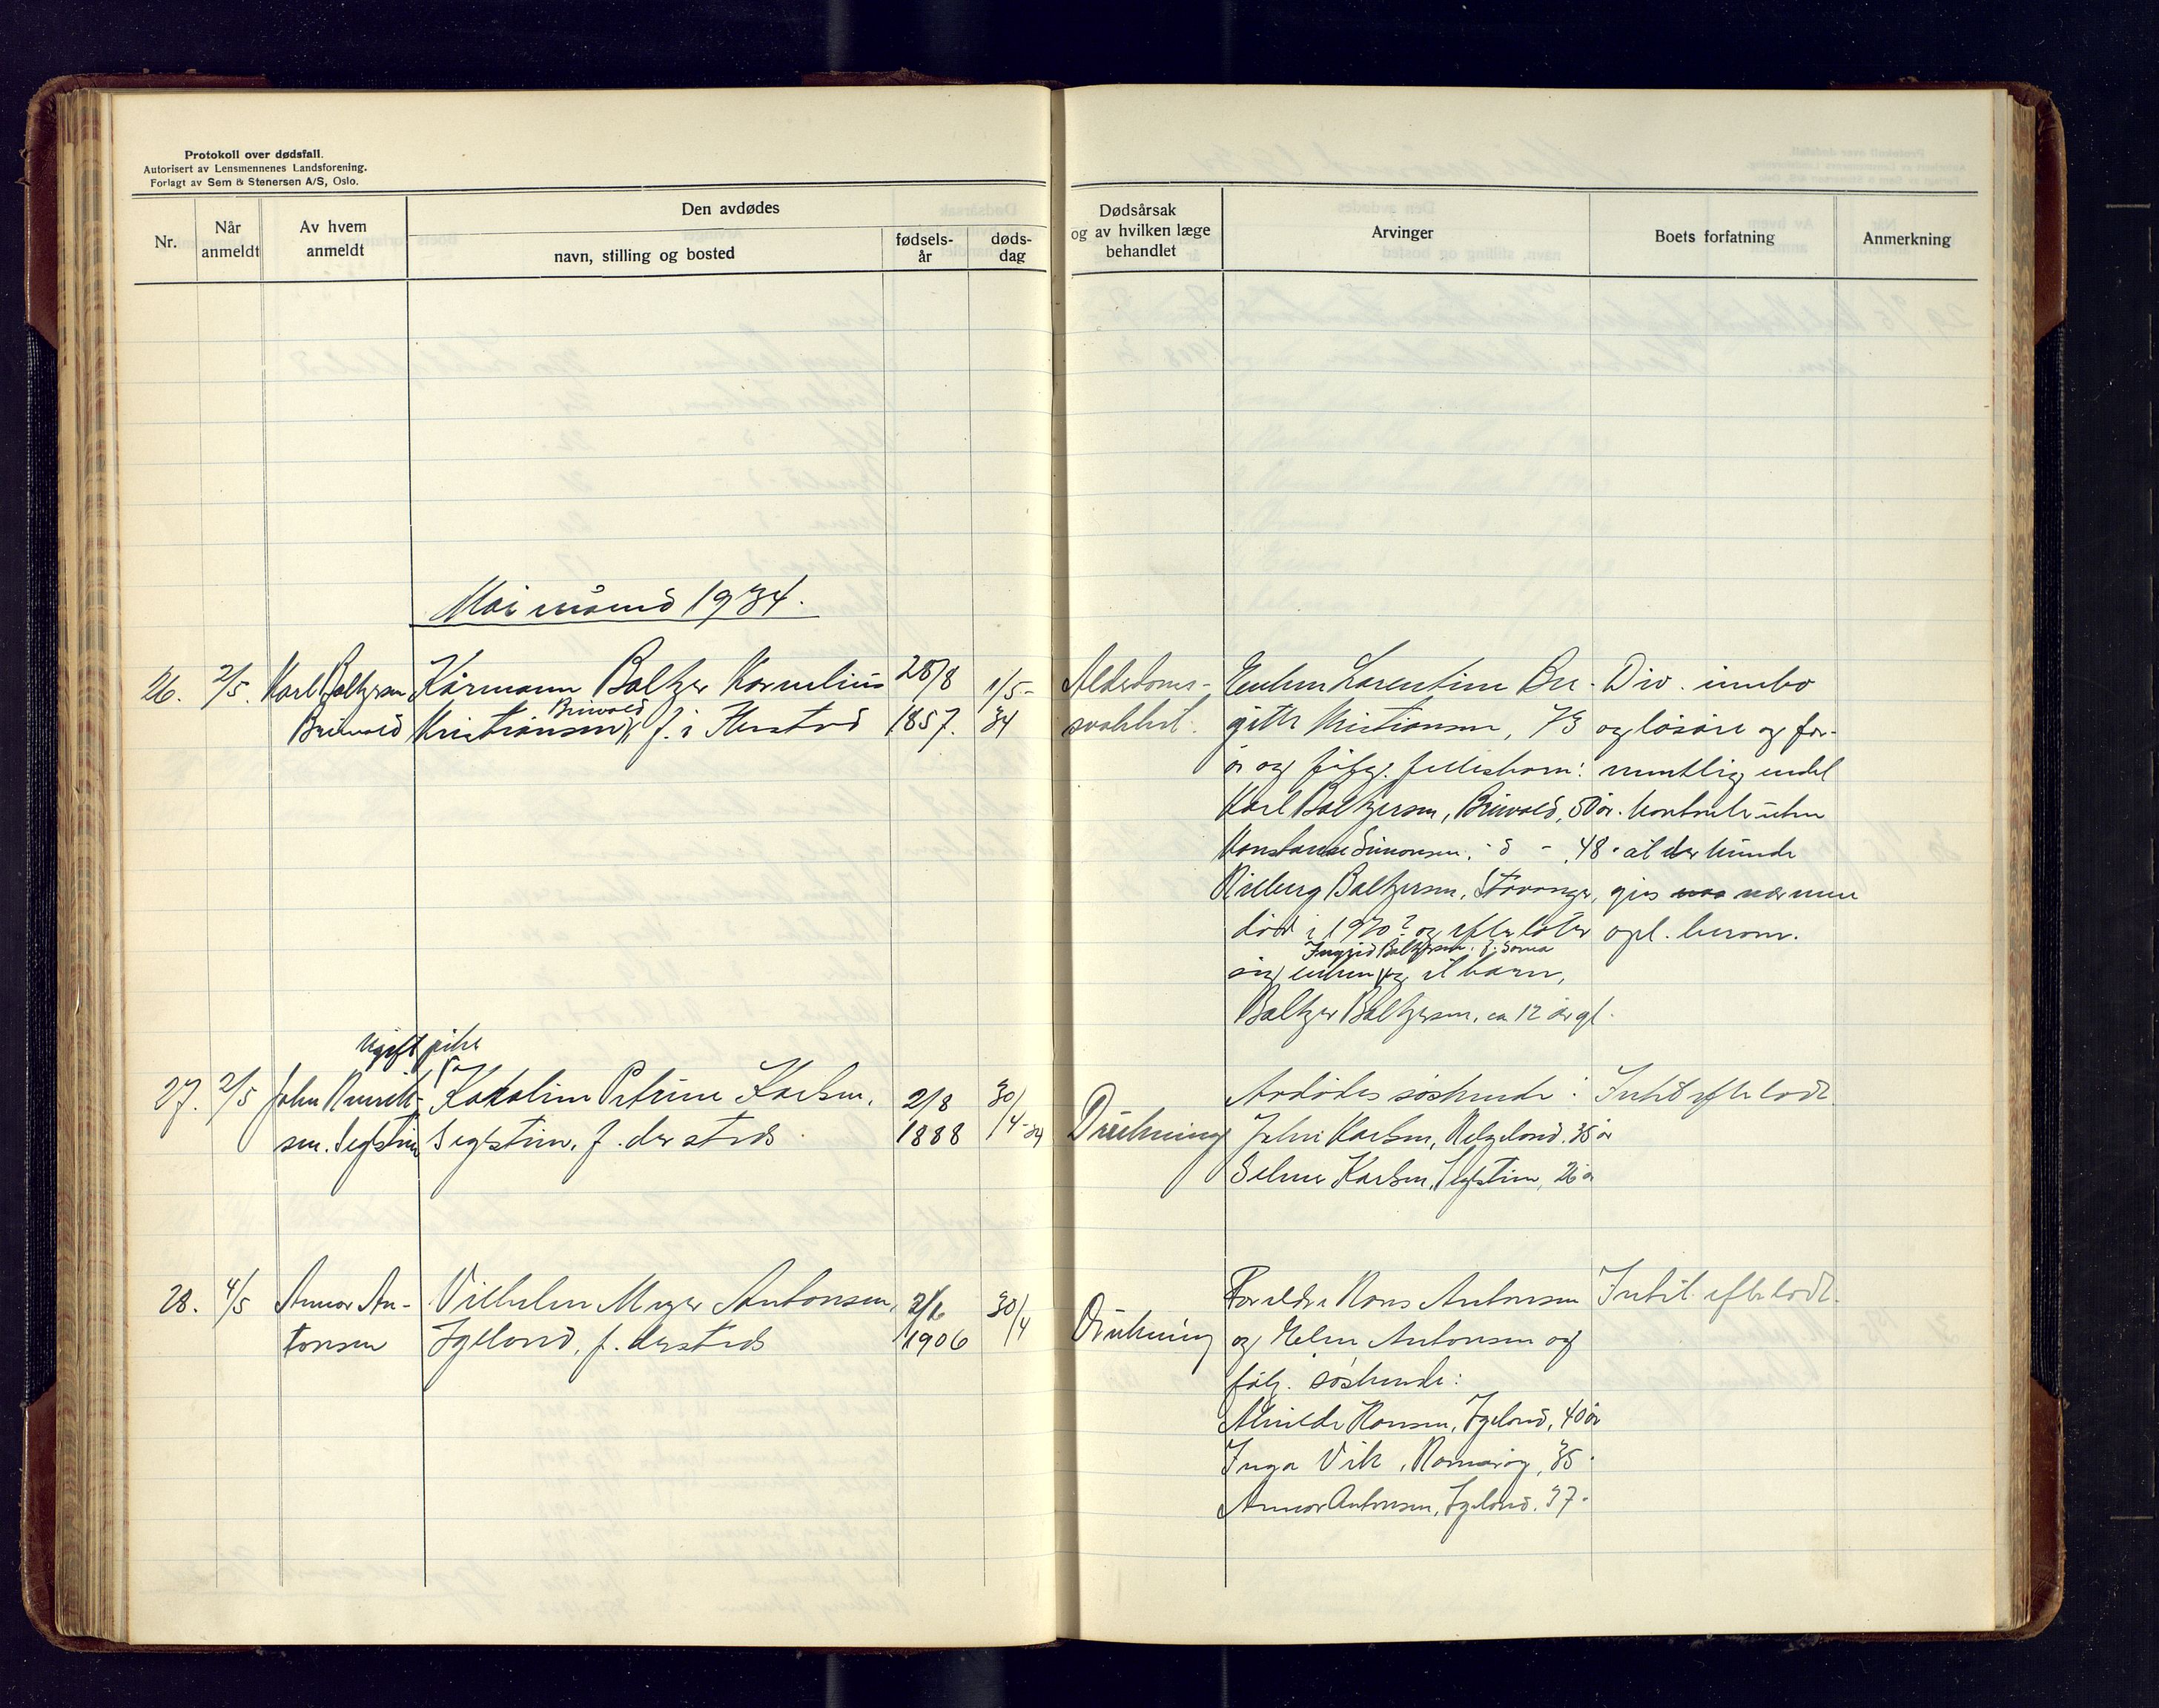 Protokoll over dødsfall.
Autorisert av Lensmennenes Landsforening.
Forlagt av Sem & Stenersen A/S, Oslo.
Nr.
Når anmeldt
Av hvem anmeldt
Den avdødes
navn, stilling og bosted
fødsels-
år
døds-
dag
Dødsårsak
og av hvilken læge
behandlet
Arvinger
Boets forfatning
Anmerkning
Mai måned 1934.
26.
2/5.
Karl Baltzersen
Breivold
Kårmann Baltzer Kornelius
Breivold
Kristiansen f. i
28/8
1857.
1/5-
34
Alderdoms-
svakhet.
Enken Larentine Bre-
gitte Kristiansen, 73
år og følg. fellesbarn:
Karl Baltzersen, Breivold, 50 år.
Konstanse Simonsen, - d - , 48 "
Baltzersen, Stavanger,
død i 1920? og efterlater
Ingrid Baltzersen
sig enken og et barn,
Baltzer Baltzersen, ca 12 år gl.
Div. innbo
og løsøre og for-
mentlig endel
kontanter uten
at der kunde
gies nærmere
opl. herom.
27.
2/5
Ugift pike
John
sen. Seglstein
Katoline Petrine Karlsen,
Seglstein, f. dersteds.
2/8
1888
30/4-34
Drukning
Avdødes søskende:
John Karlsen, Helgeland, 35 år
Selmer Karlsen, Seglstein, 26 år
Intet efterladt.
28.
4/5
Annar An-
tonsen
Vilhelm Meyer Antonsen,
Igeland, f. dersteds
2/6
1906
30/4
Drukning
Foreldre Hans Antonsen
og Elen Antonsen og
følg. søskende:
Alvilde Hansen, Igeland, 40 år
Inga Vik, Hamarøy, 35 "
Annar Antonsen, Igeland, 37 "
Intet efterladt.